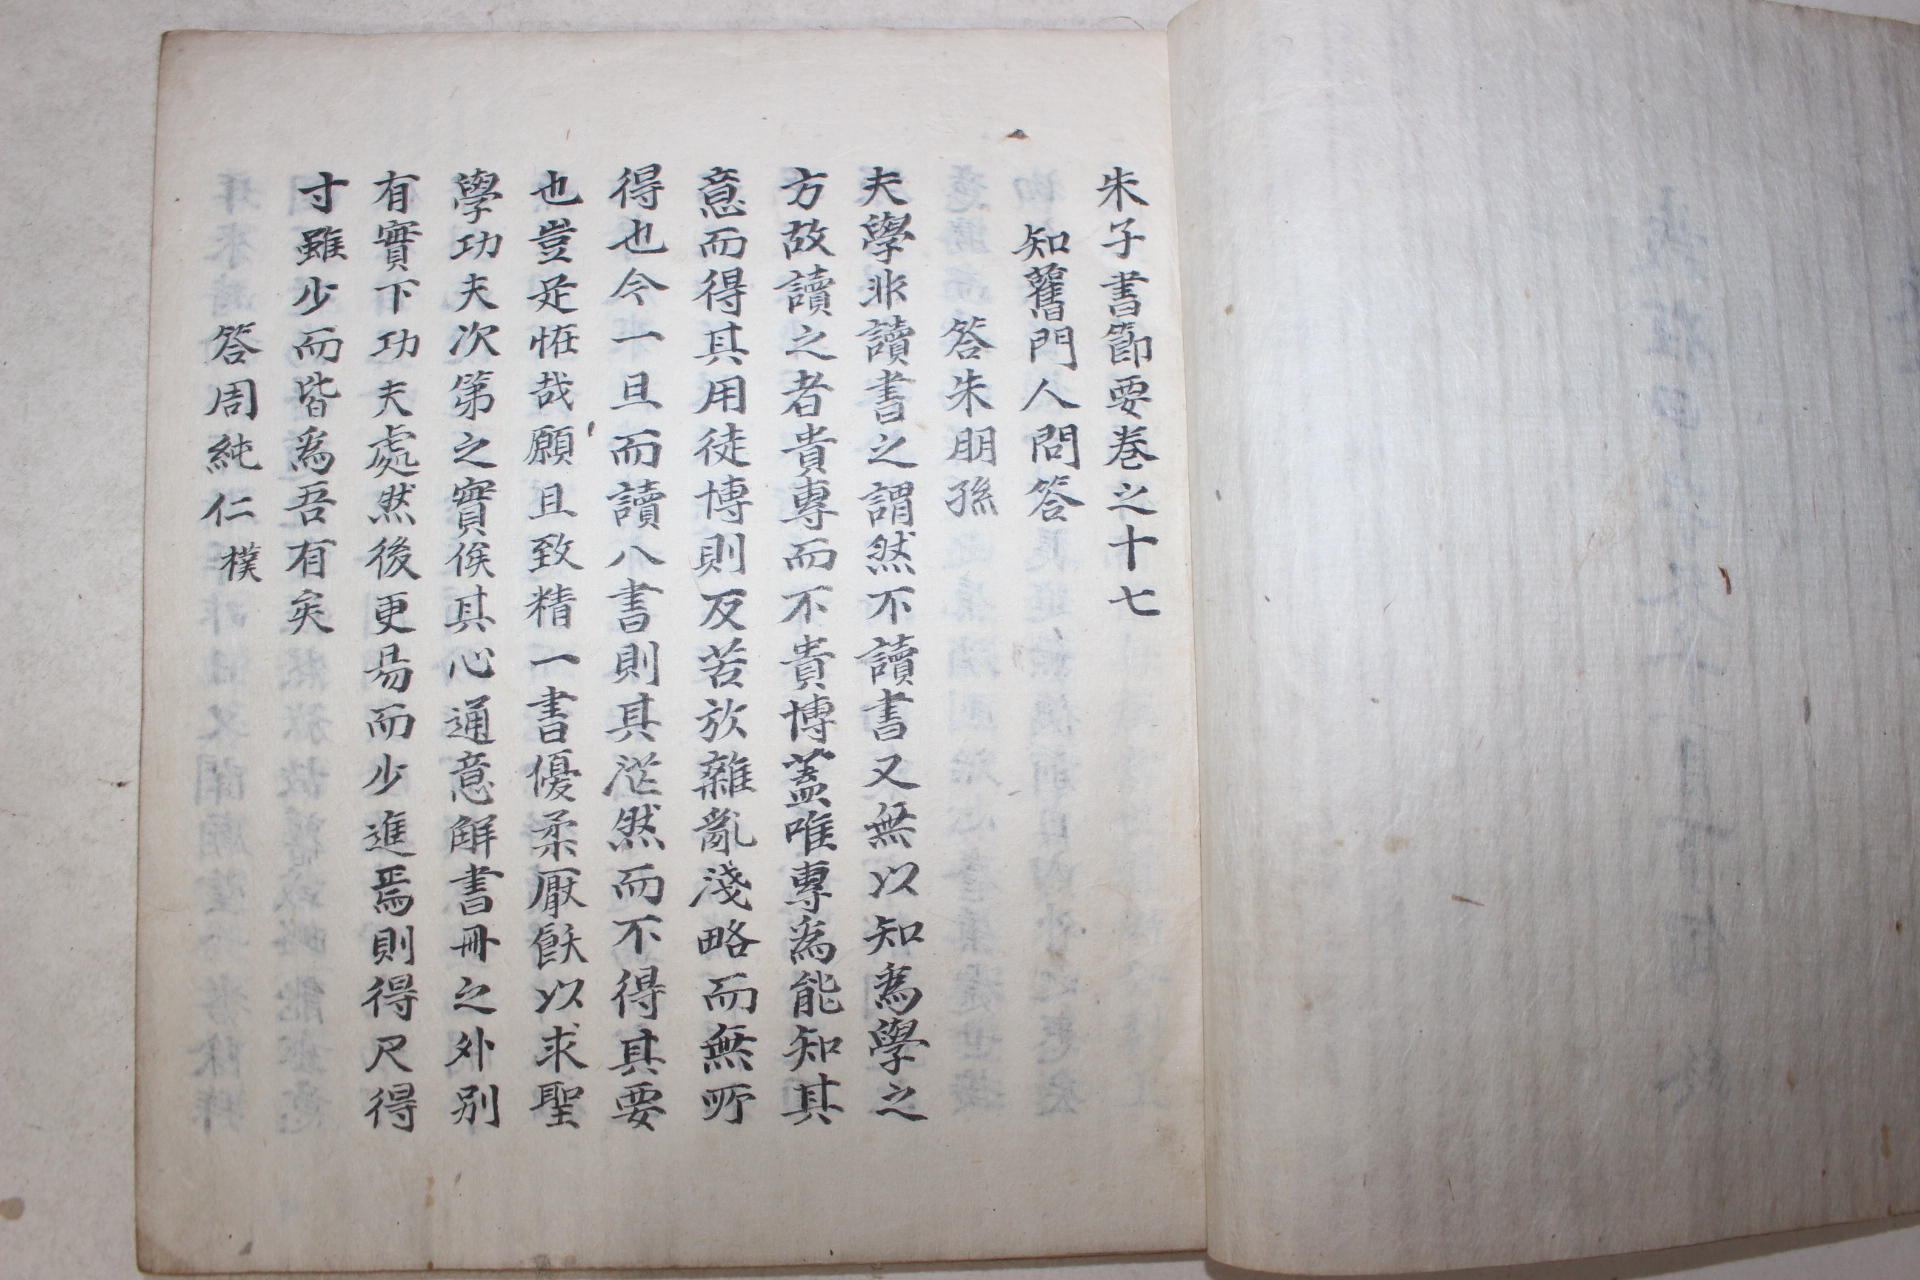 朱子書節要卷之十七
知舊門人問答
答朱朋孫
夫學非讀書之謂然不讀書又無以知爲學之
方故讀之者貴專而不貴博蓋唯專爲能知其
意而得其用徒博則反苦於雜亂淺略而無所
得也今一旦而讀八書則其茫然而不得其要
也豈足恠哉願且致精一書優柔厭飫以求聖
學功夫次第之實俟其心通意解書冊之外別
有實下功夫處然後更易而少進焉則得尺得
寸雖少而皆爲吾有矣
答周純仁 樸